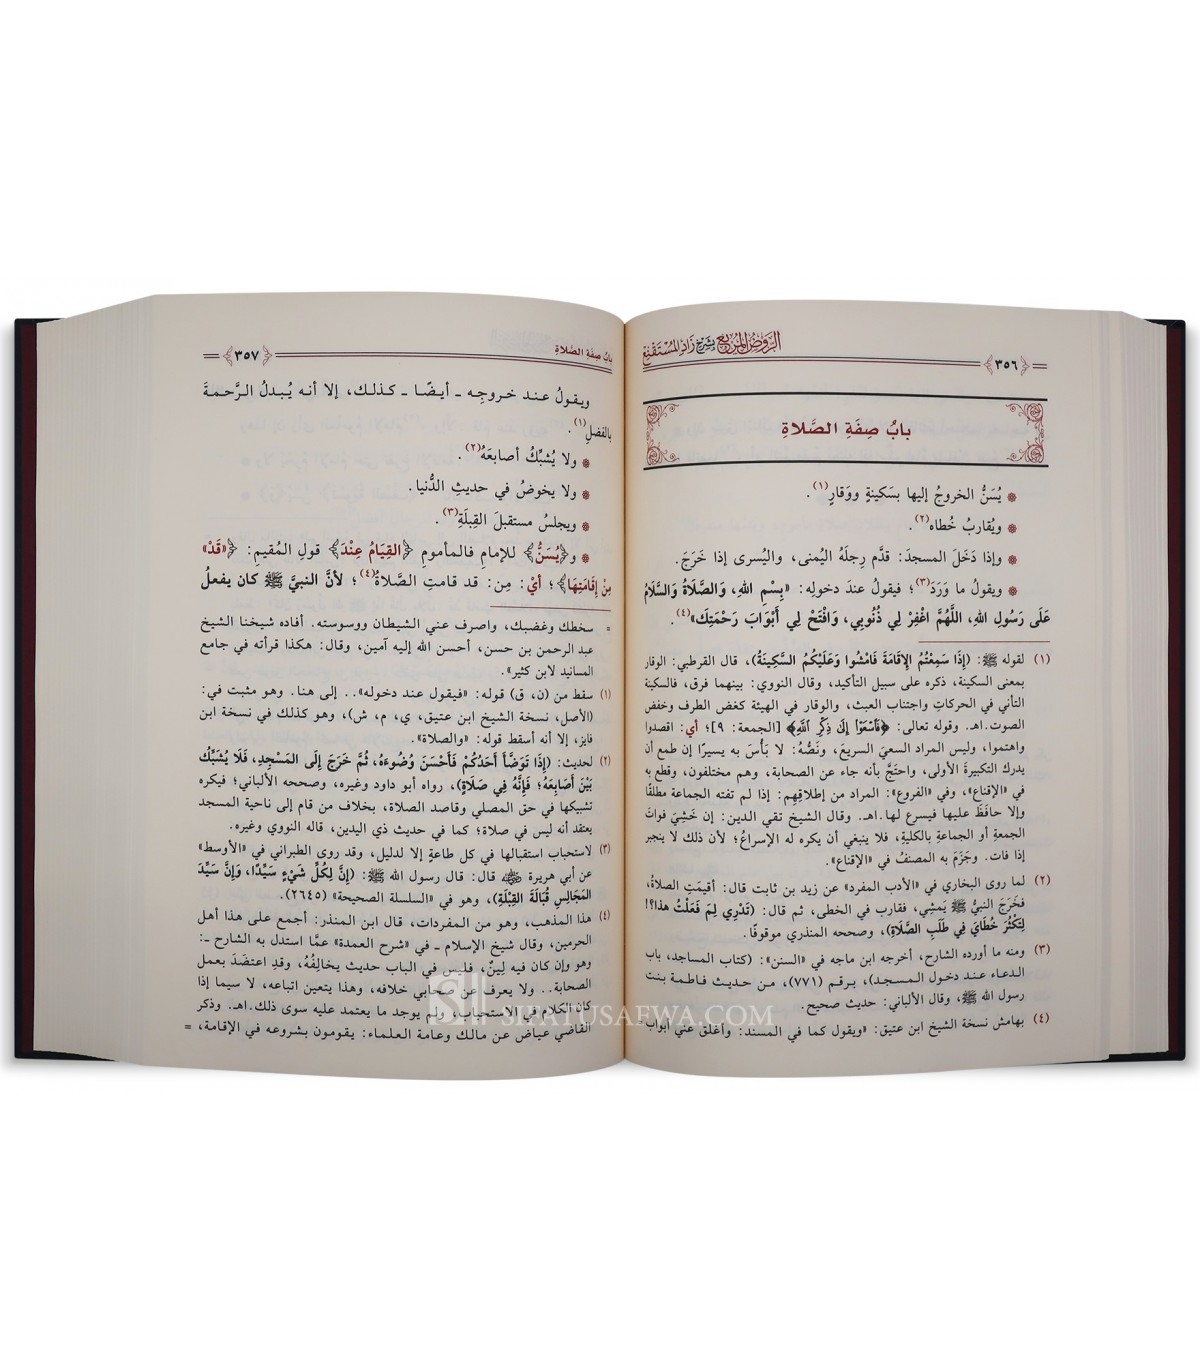 ٣٥٦
الرَّوْضُ المُرْبِع بِشَرْحِ زَادِ المُسْتَقْنِعِ
بابُ صِفَةِ الصَّلاةِ
يُسَنُّ الخروجُ إليها بسَكينةٍ ووَقارٍ(١).
ويُقاربُ خُطاه(٢).
وإذا دَخَلَ المسجدَ: قدَّم رِجلَهُ اليُمنى، واليُسرى إذا خَرَجَ.
ويقولُ ما وَرَدَ(٣)؛ فيقولُ عندَ دخولِه: «بِسْمِ اللهِ، وَالصَّلَاةُ وَالسَّلَامُ
عَلَى رَسُولِ اللهِ، اللَّهُمَّ اغْفِرْ لِي ذُنُوبِي، وَافْتَحْ لِي أَبْوَابَ رَحْمَتِكَ»(٤).
(١) لقوله ﷺ: (إِذَا سَمِعْتُمُ الإِقَامَةَ فَامْشُوا وَعَلَيْكُمُ السَّكِينَةُ)، قال القرطبي: الوقار
بمعنى السكينة، ذكره على سبيل التأكيد، وقال النووي: بينهما فرق، فالسكينة
التأني في الحركاتِ واجتناب العبث، والوقار في الهيئة كغض الطرف وخفض
الصوت.اهـ. وقوله تعالى: ﴿فَاسْعَوْا إِلَىٰ ذِكْرِ اللَّهِ﴾ [الجمعة: ٩]؛ أي: اقصدوا
واهتموا، وليس المراد السعيَ السريعَ، ونَصُّهُ: لا بَأسَ به يسيرًا إن طمع أن
يدرك التكبيرةَ الأولى، واحتَجَّ بأنه جاء عن الصحابة، وهم مختلفون، وقطع به
في «الإقناع»، وفي «الفروع»: المراد من إطلاقِهِم: إذا لم تفته الجماعة مطلقًا
وإلا حافَظَ عليها فيسرع لها.اهـ. وقال الشيخ تقي الدين: إن خَشِيَ فواتَ
الجمعةِ أو الجماعةِ بالكليةِ، فلا ينبغي أن يكره له الإسراعُ؛ لأن ذلك لا ينجبر
إذا فات. وجَزَمَ به المصنفُ في «الإقناع».
(٢) لما روى البخاري في «الأدب المفرد» عن زيد بن ثابت قال: أقيمَتِ الصلاةُ،
فخَرَجَ النبيُّ ﷺ يَمشِي، فقارب في الخطى، ثم قال: (تَدْرِي لِمَ فَعَلْتُ هذا؟!
لِتَكْثُرَ خُطَايَ فِي طَلَبِ الصَّلَاةِ)، وصححه المنذري موقوفًا.
(٣) ومنه ما أورده الشارح، أخرجه ابن ماجه في «السنن»: (كتاب المساجد، باب
الدعاء عند دخول المسجد)، برقم (٧٧١)، من حديث فاطمة بنت
رسول الله ﷺ، وقال الألباني: حديث صحيح.
(٤) بهامش نسخة الشيخ ابن عتيق: «ويقول كما في المسند: وأغلق عني أبواب
بابُ صِفَةِ الصَّلَاةِ
٣٥٧
ويقولُ عند خروجِه ـ أيضًا ـ كذلك، إلا أنه يُبدلُ الرَّحمةَ
بالفضلِ(١).
ولا يُشبِّكُ أصابعَهُ(٢).
ولا يخوضُ في حديثِ الدُّنيا.
ويجلسُ مستقبلَ القِبلَةِ(٣).
و﴿يُسَنُّ﴾ للإمامِ فالمأمومِ ﴿القِيَامُ عِنْدَ﴾ قولِ المُقيمِ: ﴿«قَدْ»
مِنْ إِقَامَتِهَا﴾؛ أيْ: مِن: قد قامتِ الصَّلاةُ(٤)؛ لأنَّ النبيَّ ﷺ كان يفعلُ
= سخطك وغضبك، واصرف عني الشيطان ووسوسته. أفاده شيخنا الشيخ
عبد الرحمن بن حسن، أحسن الله إليه آمين، وقال: هكذا قرأته في جامع
المسانيد لابن كثير».
(١) سقط من (ن، ق) قوله: «فيقول عند دخوله».. إلى هنا. وهو مثبت في:
(الأصل، نسخة الشيخ ابن عتيق، ي، م، ش)، وهو كذلك في نسخة ابن
فايز، إلا أنه أسقط قوله: «والصلاة».
(٢) لحديث: (إِذَا تَوَضَّأَ أَحَدُكُمْ فَأَحْسَنَ وُضُوءَهُ، ثُمَّ خَرَجَ إِلَى المَسْجِدِ، فَلَا يُشَبِّكْ
بَيْنَ أَصَابِعَهُ؛ فَإِنَّهُ فِي صَلَاةٍ)، رواه أبو داود وغيره، وصححه الألباني؛ فيكره
تشبيكها في حق المصلي وقاصد الصلاة، بخلاف من قام إلى ناحية المسجد
يعتقد أنه ليس في صلاة؛ كما في حديث ذي اليدين، قاله النووي وغيره.
(٣) لاستحباب استقبالها في كل طاعةٍ إلا لدليل، وقد روى الطبراني في «الأوسط»
عن أبي هريرة ﷺ قال: قال رسول الله ﷺ: (إِنَّ لِكُلِّ شَيْءٍ سَيِّدًا، وَإِنَّ سَيِّدَ
المَجَالِسِ قُبَالَةَ القِبْلَةِ)، وهو في «السلسلة الصحيحة» (٢٦٤٥).
(٤) هذا المذهب، وهو من المفردات، قال ابن المنذر: أجمع على هذا أهل
الحرمين، وقال شيخ الإسلام ـ في «شرح العمدة» عمَّا استدل به الشارح ـ:
وهو وإن كان فيه لِينٌ، فليس في الباب حديث يخالِفُهُ، وقدِ اعتضَدَ بعمل
الصحابة.. ولا يعرف عن صحابي خلافه، وهذا يتعين اتباعه، لا سيما إذا
كان الكلام في الاستحباب، ولم يوجد ما يعتمد عليه سوى ذلك.اهـ. وذكر
القاضي عياض عن مالك وعامة العلماء: يقومون بشروعه في الإقامة، =
SIFATUSAFWA.COM